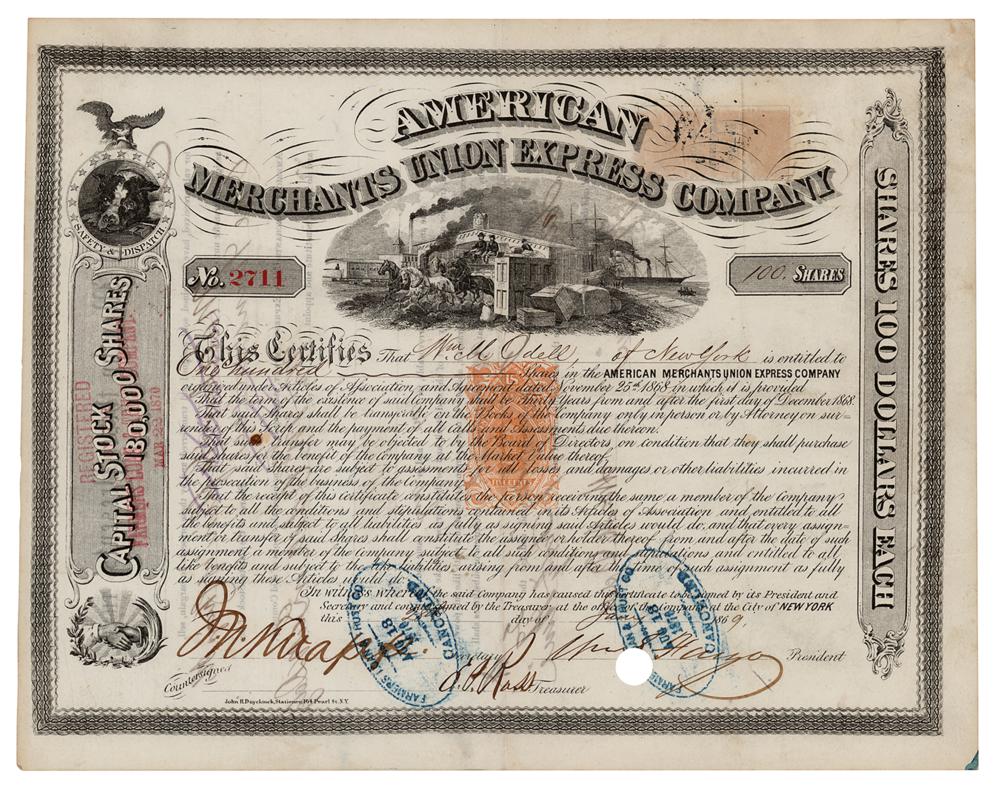 AMERICAN
MERCHANTS UNION EXPRESS COMPANY
SAFETY & DISPATCH
No. 2711
100. SHARES
CAPITAL STOCK
180.000 SHARES
REGISTERED
MAR 1870
SHARES 100 DOLLARS EACH
This Certifies That Wm. M. Odell, of New York is entitled to
One hundred Shares in the AMERICAN MERCHANTS UNION EXPRESS COMPANY
organized under Articles of Association and Agreement dated November 25th 1868 in which it is provided
That the term of the existence of said Company shall be Thirty Years from and after the first day of December 1868.
That said Shares shall be transferable on the Books of the Company only in person or by Attorney on sur=
render of this Scrip and the payment of all Calls and Assessments due thereon.
That such transfer may be objected to by the Board of Directors, on condition that they shall purchase
said Shares for the benefit of the Company at the Market Value thereof.
That said Shares are subject to assessments for all losses and damages or other liabilities incurred in
the prosecution of the business of the Company.
That the receipt of this Certificate constitutes the person receiving the same a member of the Company
subject to all the conditions and stipulations contained in its Articles of Association, and entitled to all
the benefits and subject to all liabilities as fully as signing said Articles would do, and that every assign=
ment or transfer of said Shares shall constitute the assignee or holder thereof from and after the date of such
assignment a member of the Company subject to all such conditions and stipulations and entitled to all
like benefits and subject to the like liabilities arising from and after the time of such assignment as fully
as signing these Articles would do.
In witness whereof the said Company has caused this Certificate to be signed by its President and
Secretary and countersigned by the Treasurer at the office of the Company at the City of NEW YORK
this day of 1869,
President
Countersigned
Treasurer
FARMERS LOAN & TRUST CO
AUG 18
1870
CANCELLED
FARMERS LOAN & TRUST CO
AUG 18
1870
CANCELLED
John R. Duyckinck, Stationer, 164 Pearl St. N.Y.